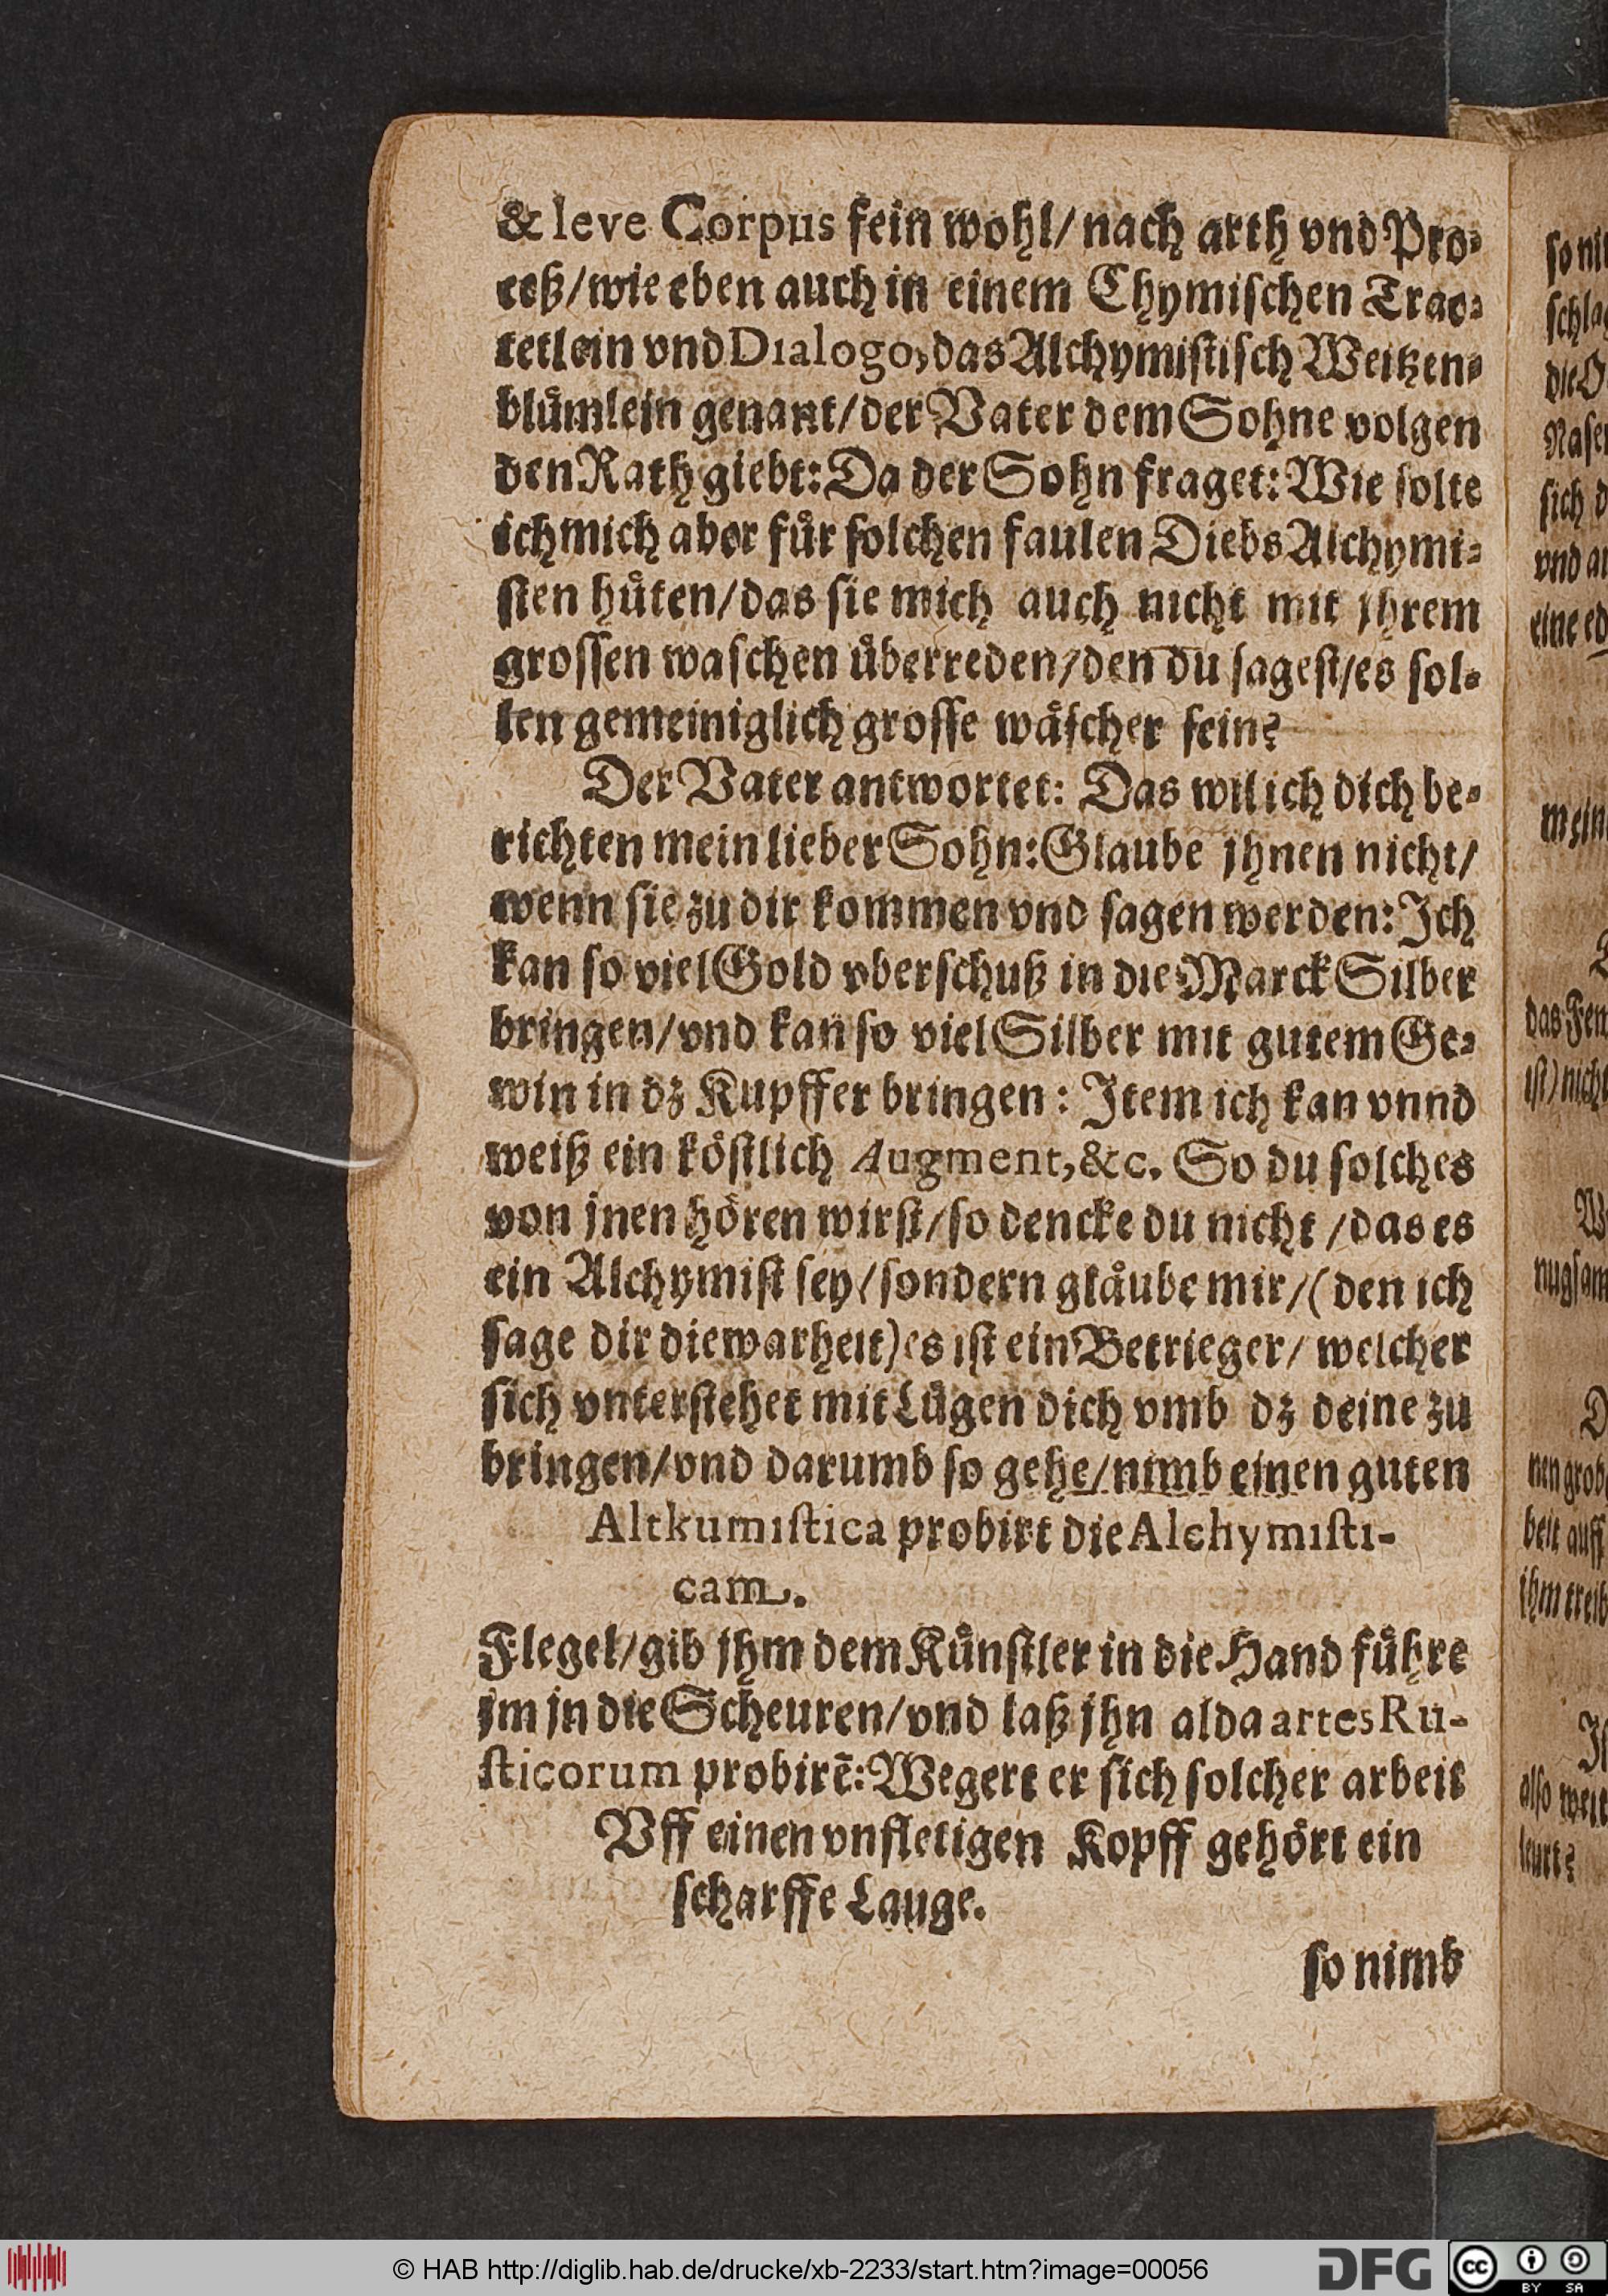 & leve Corpus fein wohl/ nach arth vnd Pro-
ceß/ wie eben auch in einem Chymischen Trac-
tetlein vnd Dialogo, das Alchymistisch Weitzen-
blůmlein genant/ der Vater dem Sohne volgen
den Rath giebt: Da der Sohn fraget: Wie solte
ich mich aber fůr solchen faulen Diebs Alchymi-
sten hůten/ das sie mich auch nicht mit jhrem
grossen waschen ůberreden/ den du sagest/ es sol-
len gemeiniglich grosse wåscher sein?
Der Vater antwortet: Das wil ich dich be-
richten mein lieber Sohn: Glaube jhnen nicht/
wenn sie zu dir kommen vnd sagen werden: Ich
kan so viel Gold vberschuß in die Marck Silber
bringen/ vnd kan so viel Silber mit gutem Ge-
win in dz Kupffer bringen: Item ich kan vnnd
weiß ein kőstlich Augment, &c. So du solches
von jnen hőren wirst/ so dencke du nicht / das es
ein Alchymist sey/ sondern glåube mir/ (den ich
sage dir die warheit) es ist ein Betrieger/ welcher
sich vnterstehet mit Lůgen dich vmb dz deine zu
bringen/ vnd darumb so gehe/ nimb einen guten
Altkumistica probirt die Alchymisti-
cam.
Flegel/ gib jhm dem Kůnstler in die Hand fůhre
jm jn die Scheuren/ vnd laß jhn alda artes Ru-
sticorum probirẽ: Wegert er sich solcher arbeit
Vff einen vnfletigen Kopff gehőrt ein
scharffe Lauge.
so nimb
© HAB http://diglib.hab.de/drucke/xb-2233/start.htm?image=00056
DFG
cc
BY SA